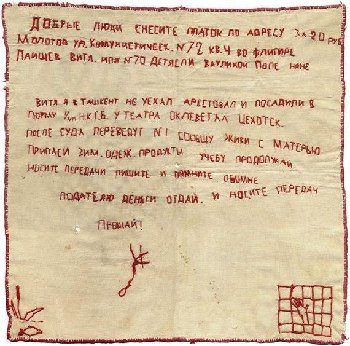 Добрые люди снесите платок по адресу за 20 руб
Молотов ул. Коммунистическ. N 72 кв. 4 во флигеле
Витя.
Витя я в Ташкент не уехал арестовал и посадили в
тюрьму НКГБ. у театра оклеветал
после суда переведут N1 сообщу живи с матерью
припаси зим. одеж. продукты учебу продолжай
носите передачи пишите и помните обо мне
подателю деньги отдай. и носите передач
Прощай!